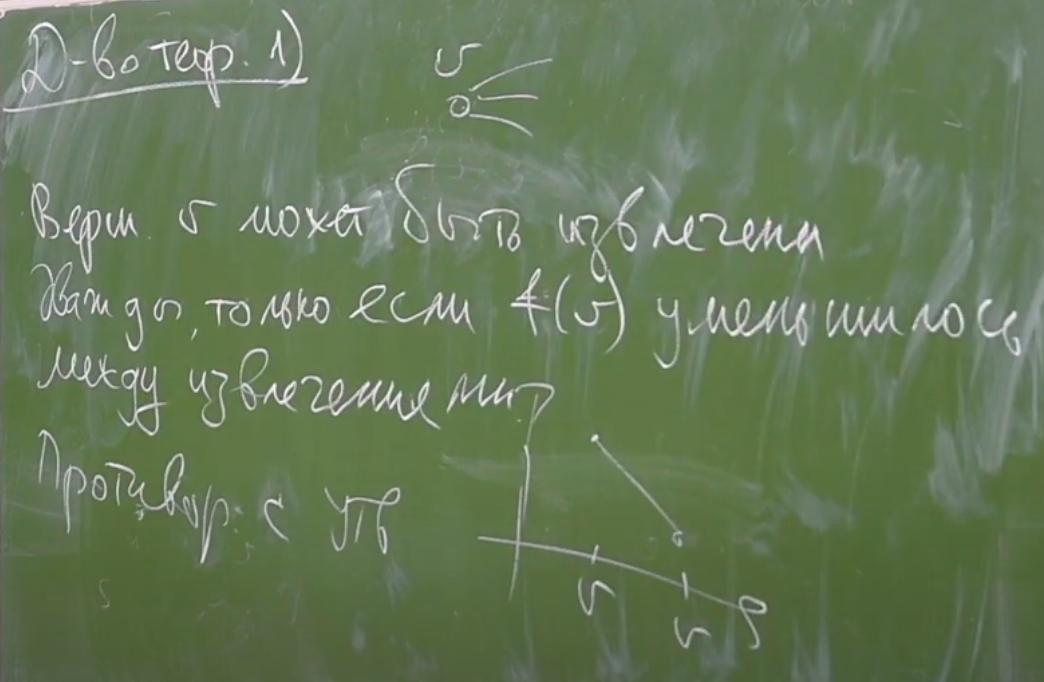 Д-во теор. 1)
v
Верш. v может быть извлечена
дважды, только если f(v) уменьшилось
между извлечениями
Противор. с утв
v
v